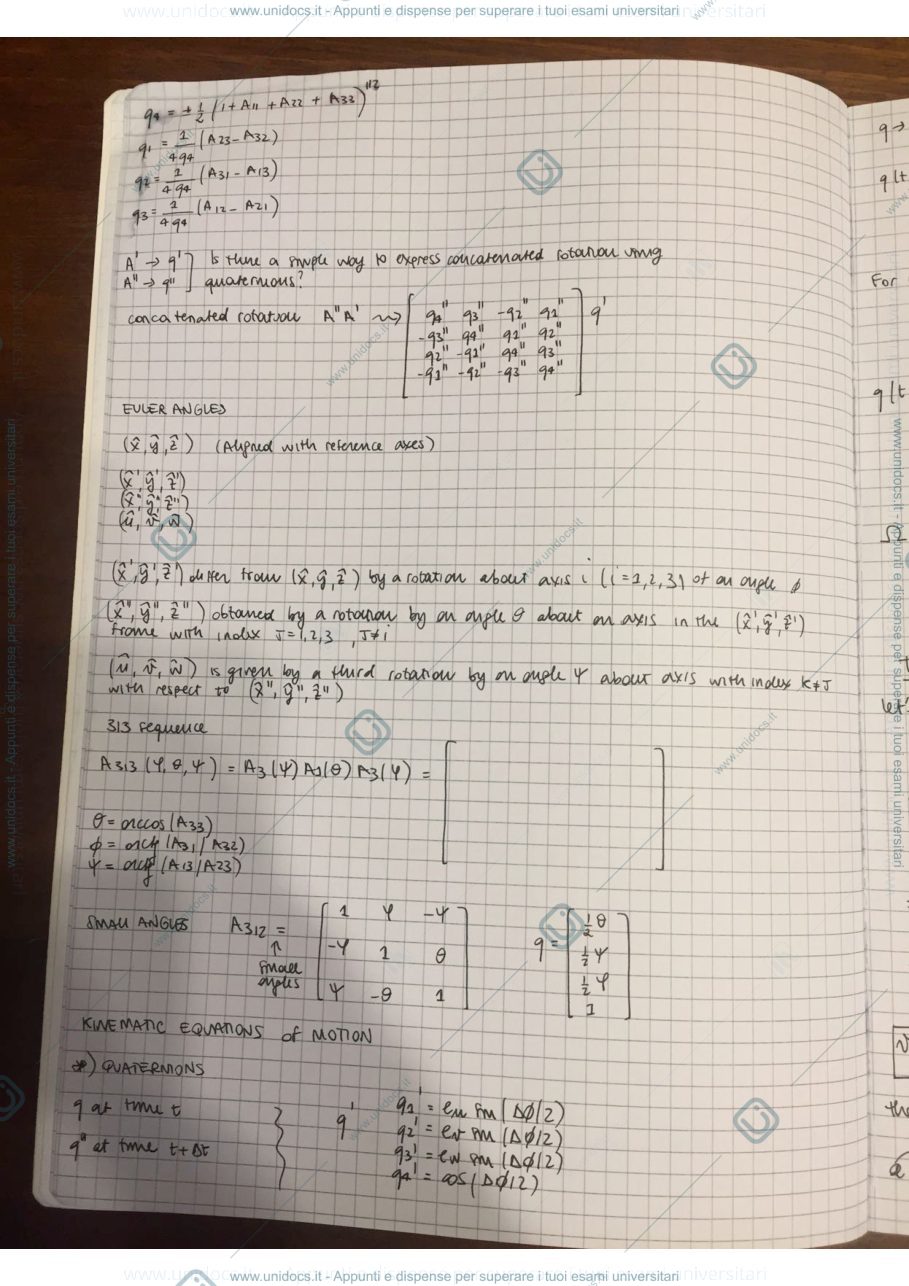 www.unidocs.it - Appunti e dispense per superare i tuoi esami universitari
q4 = ± 1/2 (1 + A11 + A22 + A33)^1/2
q1 = 1/4q4 (A23 - A32)
q2 = 1/4q4 (A31 - A13)
q3 = 1/4q4 (A12 - A21)
A' → q' ] Is there a simple way to express concatenated rotation using
A" → q" ] quaternions?
concatenated rotation A"A' ⇝ [ q4" q3" -q2" q1" ] q'
-q3" q4" q1" q2"
q2" -q1" q4" q3"
-q1" -q2" -q3" q4"
EULER ANGLES
(x̂, ŷ, ẑ) (Aligned with reference axes)
(x̂', ŷ', ẑ')
(x̂", ŷ", ẑ")
(û, v̂, ŵ)
(x̂', ŷ', ẑ') differ from (x̂, ŷ, ẑ) by a rotation about axis i (i = 1,2,3) of an angle ϕ
(x̂", ŷ", ẑ") obtained by a rotation by an angle θ about an axis in the (x̂', ŷ', ẑ')
frame with index J = 1,2,3 , J≠i
(û, v̂, ŵ) is given by a third rotation by an angle Ψ about axis with index K≠J
with respect to (x̂", ŷ", ẑ")
313 sequence
A313 (φ, θ, Ψ) = A3(Ψ) A1(θ) A3(φ) = [ ]
θ = arccos (A33)
ϕ = arctg (A31/A32)
Ψ = arctg (A13/A23)
SMALL ANGLES A312 = [ 1 φ -Ψ ] q = [ 1/2 θ ]
↑ -φ 1 θ 1/2 Ψ
small 1/2 φ
angles Ψ -θ 1 1
KINEMATIC EQUATIONS of MOTION
*) QUATERNIONS
q at time t
q" at time t+Δt
q'
q1' = eu sin (Δϕ/2)
q2' = ev sin (Δϕ/2)
q3' = ew sin (Δϕ/2)
q4' = cos (Δϕ/2)
q →
q(t
For
q(t
let'
the
www.unidocs.it - Appunti e dispense per superare i tuoi esami universitari